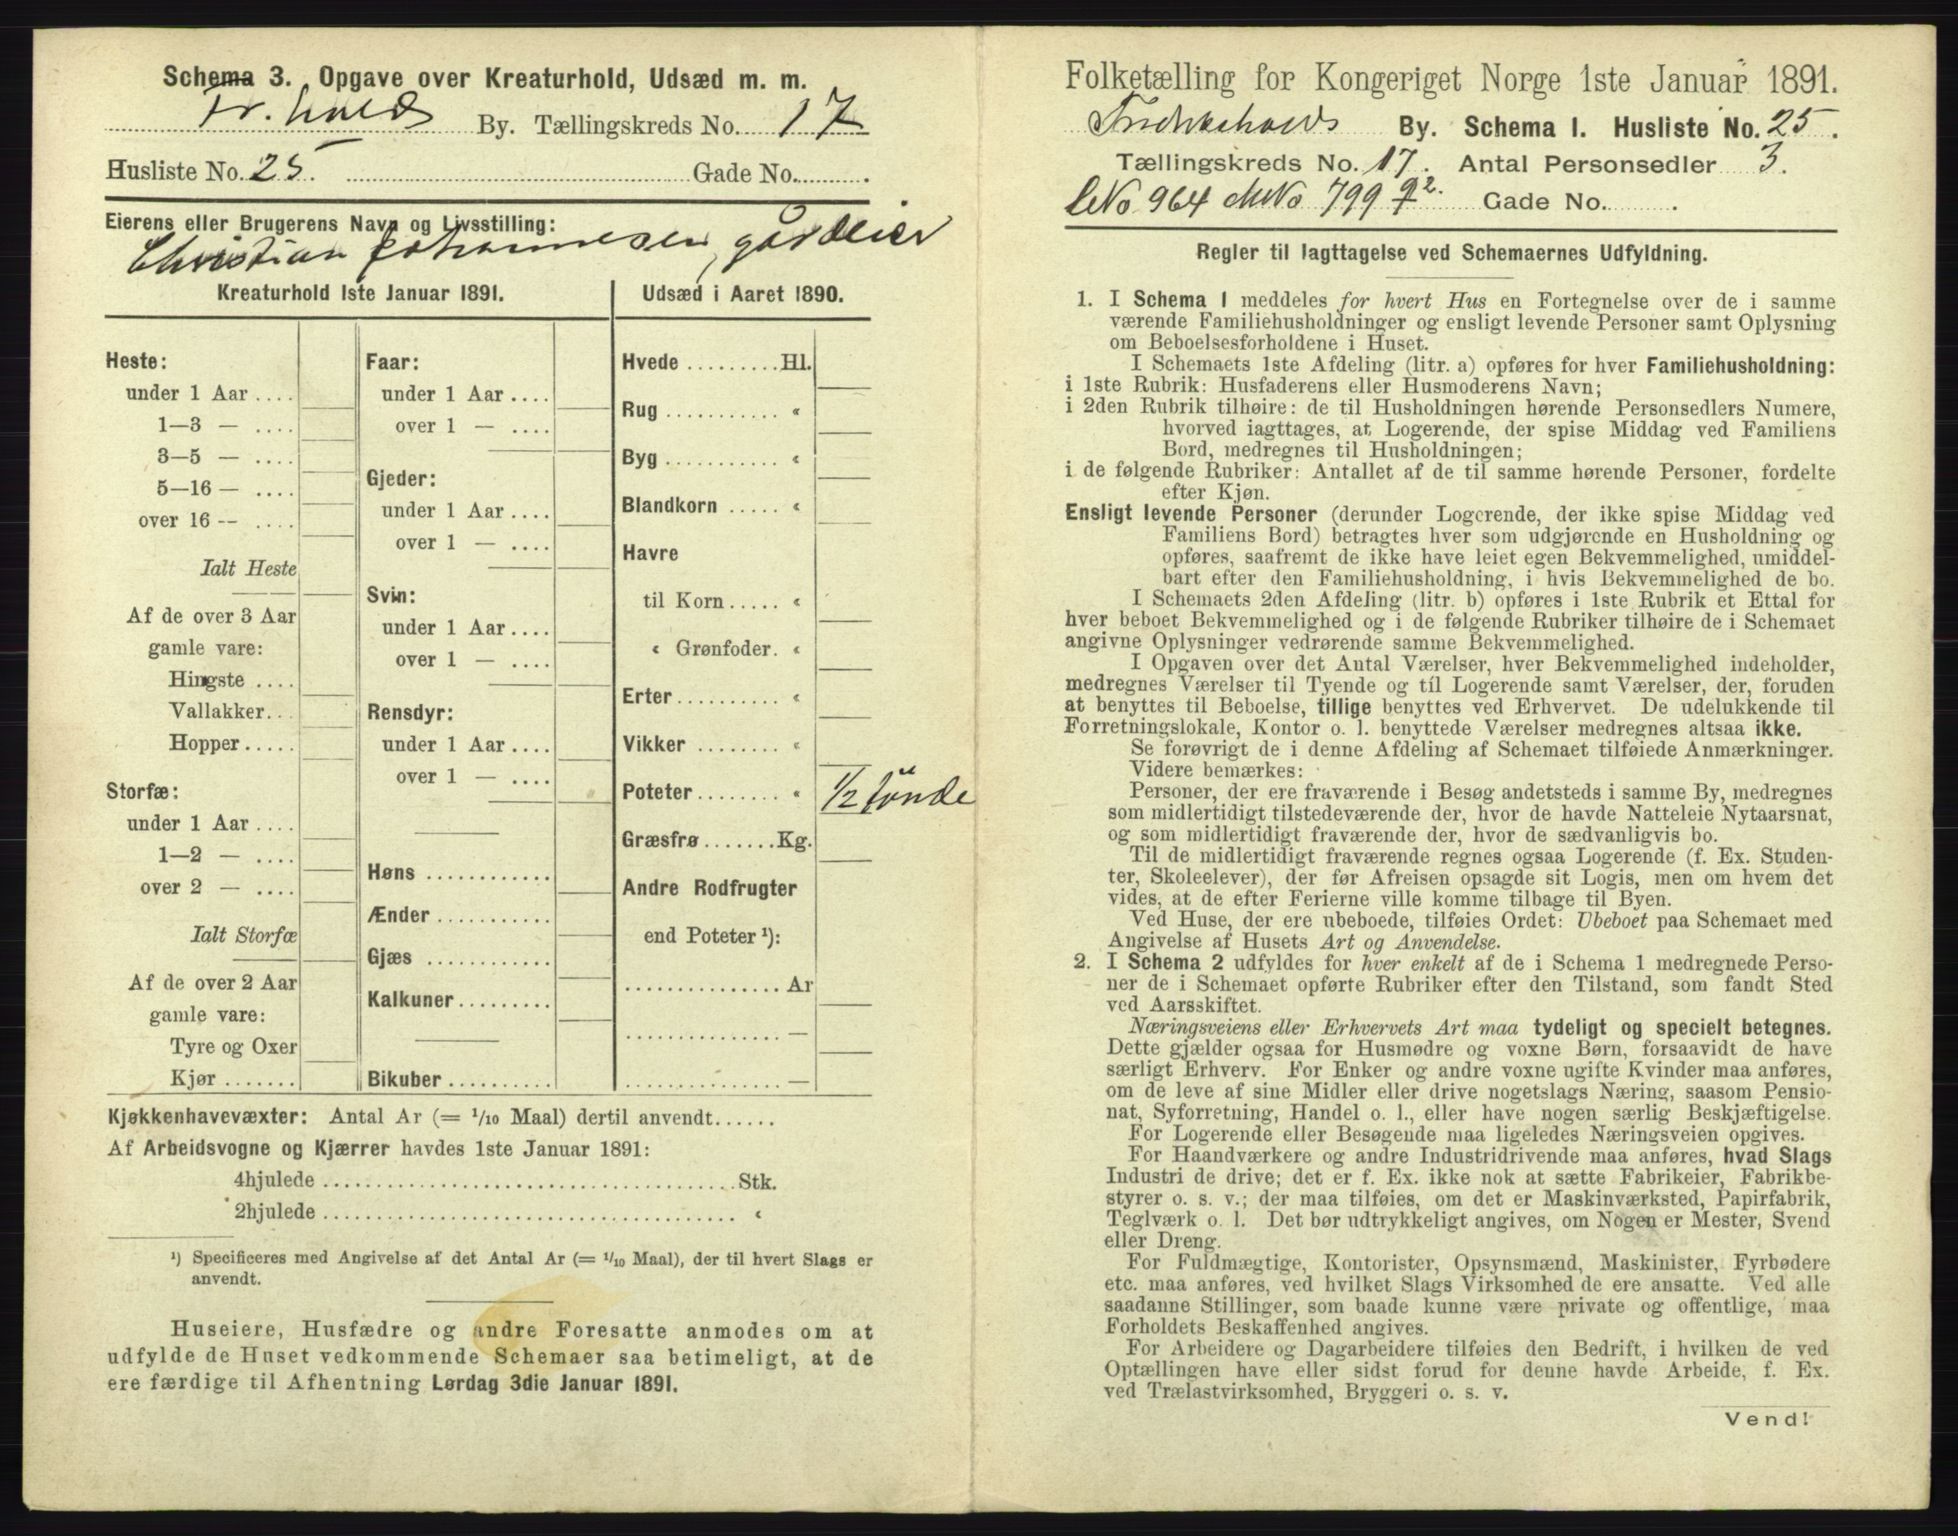 Schema 3. Opgave over Kreaturhold, Udsæd m. m.
Fr. halds By. Tællingskreds No. 17
Husliste No. 25. Gade No. .
Eierens eller Brugerens Navn og Livsstilling:
Christian Johannesen, gårdeier
Kreaturhold 1ste Januar 1891.
Heste:
under 1 Aar ....
1—3 — ....
3—5 — ....
5—16 — ....
over 16 -- ....
Ialt Heste
Af de over 3 Aar
gamle vare:
Hingste ....
Vallakker...
Hopper.....
Storfæ:
under 1 Aar ....
1—2 — ....
over 2 — ....
Ialt Storfæ
Af de over 2 Aar
gamle vare:
Tyre og Oxer
Kjør .......
Faar:
under 1 Aar ....
over 1 — ....
Gjeder:
under 1 Aar ....
over 1 — ....
Svin:
under 1 Aar ....
over 1 — ....
Rensdyr:
under 1 Aar ....
over 1 — ....
Høns ............
Ænder ...........
Gjæs ............
Kalkuner.........
Bikuber ..........
Udsæd i Aaret 1890.
Hvede .........Hl.
Rug ........... «
Byg ........... «
Blandkorn ..... «
Havre
til Korn..... «
« Grønfoder. «
Erter.......... «
Vikker ........ «
Poteter........ « 1/2 tønde
Græsfrø .......Kg.
Andre Rodfrugter
end Poteter ¹):
............... Ar
............... —
............... —
Kjøkkenhavevæxter: Antal Ar (= 1/10 Maal) dertil anvendt......
Af Arbeidsvogne og Kjærrer havdes 1ste Januar 1891:
4hjulede .......................................Stk.
2hjulede ....................................... «
¹) Specificeres med Angivelse af det Antal Ar (= 1/10 Maal), der til hvert Slags er
anvendt.
Huseiere, Husfædre og andre Foresatte anmodes om at
udfylde de Huset vedkommende Schemaer saa betimeligt, at de
ere færdige til Afhentning Lørdag 3die Januar 1891.
Folketælling for Kongeriget Norge 1ste Januar 1891.
Fredrikshalds By. Schema I. Husliste No. 25.
Tællingskreds No. 17. Antal Personsedler 3.
LNo 964 MNo 799 q2. Gade No. .
Regler til Iagttagelse ved Schemaernes Udfyldning.
1. I Schema 1 meddeles for hvert Hus en Fortegnelse over de i samme
værende Familiehusholdninger og ensligt levende Personer samt Oplysning
om Beboelsesforholdene i Huset.
I Schemaets 1ste Afdeling (litr. a) opføres for hver Familiehusholdning:
i 1ste Rubrik: Husfaderens eller Husmoderens Navn;
i 2den Rubrik tilhøire: de til Husholdningen hørende Personsedlers Numere,
hvorved iagttages, at Logerende, der spise Middag ved Familiens
Bord, medregnes til Husholdningen;
i de følgende Rubriker: Antallet af de til samme hørende Personer, fordelte
efter Kjøn.
Ensligt levende Personer (derunder Logerende, der ikke spise Middag ved
Familiens Bord) betragtes hver som udgjørende en Husholdning og
opføres, saafremt de ikke have leiet egen Bekvemmelighed, umiddel-
bart efter den Familiehusholdning, i hvis Bekvemmelighed de bo.
I Schemaets 2den Afdeling (litr. b) opføres i 1ste Rubrik et Ettal for
hver beboet Bekvemmelighed og i de følgende Rubriker tilhøire de i Schemaet
angivne Oplysninger vedrørende samme Bekvemmelighed.
I Opgaven over det Antal Værelser, hver Bekvemmelighed indeholder,
medregnes Værelser til Tyende og til Logerende samt Værelser, der, foruden
at benyttes til Beboelse, tillige benyttes ved Erhvervet. De udelukkende til
Forretningslokale, Kontor o. l. benyttede Værelser medregnes altsaa ikke.
Se forøvrigt de i denne Afdeling af Schemaet tilføiede Anmærkninger.
Videre bemærkes:
Personer, der ere fraværende i Besøg andetsteds i samme By, medregnes
som midlertidigt tilstedeværende der, hvor de havde Natteleie Nytaarsnat,
og som midlertidigt fraværende der, hvor de sædvanligvis bo.
Til de midlertidigt fraværende regnes ogsaa Logerende (f. Ex. Studen-
ter, Skoleelever), der før Afreisen opsagde sit Logis, men om hvem det
vides, at de efter Ferierne ville komme tilbage til Byen.
Ved Huse, der ere ubeboede, tilføies Ordet: Ubeboet paa Schemaet med
Angivelse af Husets Art og Anvendelse.
2. I Schema 2 udfyldes for hver enkelt af de i Schema 1 medregnede Perso-
ner de i Schemaet opførte Rubriker efter den Tilstand, som fandt Sted
ved Aarsskiftet.
Næringsveiens eller Erhvervets Art maa tydeligt og specielt betegnes.
Dette gjælder ogsaa for Husmødre og voxne Børn, forsaavidt de have
særligt Erhverv. For Enker og andre voxne ugifte Kvinder maa anføres,
om de leve af sine Midler eller drive nogetslags Næring, saasom Pensio-
nat, Syforretning, Handel o. l., eller have nogen særlig Beskjæftigelse.
For Logerende eller Besøgende maa ligeledes Næringsveien opgives.
For Haandværkere og andre Industridrivende maa anføres, hvad Slags
Industri de drive; det er f. Ex. ikke nok at sætte Fabrikeier, Fabrikbe-
styrer o. s. v.; der maa tilføies, om det er Maskinværksted, Papirfabrik,
Teglværk o. l. Det bør udtrykkeligt angives, om Nogen er Mester, Svend
eller Dreng.
For Fuldmægtige, Kontorister, Opsynsmænd, Maskinister, Fyrbødere
etc. maa anføres, ved hvilket Slags Virksomhed de ere ansatte. Ved alle
saadanne Stillinger, som baade kunne være private og offentlige, maa
Forholdets Beskaffenhed angives.
For Arbeidere og Dagarbeidere tilføies den Bedrift, i hvilken de ved
Optællingen have eller sidst forud for denne havde Arbeide, f. Ex.
ved Trælastvirksomhed, Bryggeri o. s. v.
Vend!